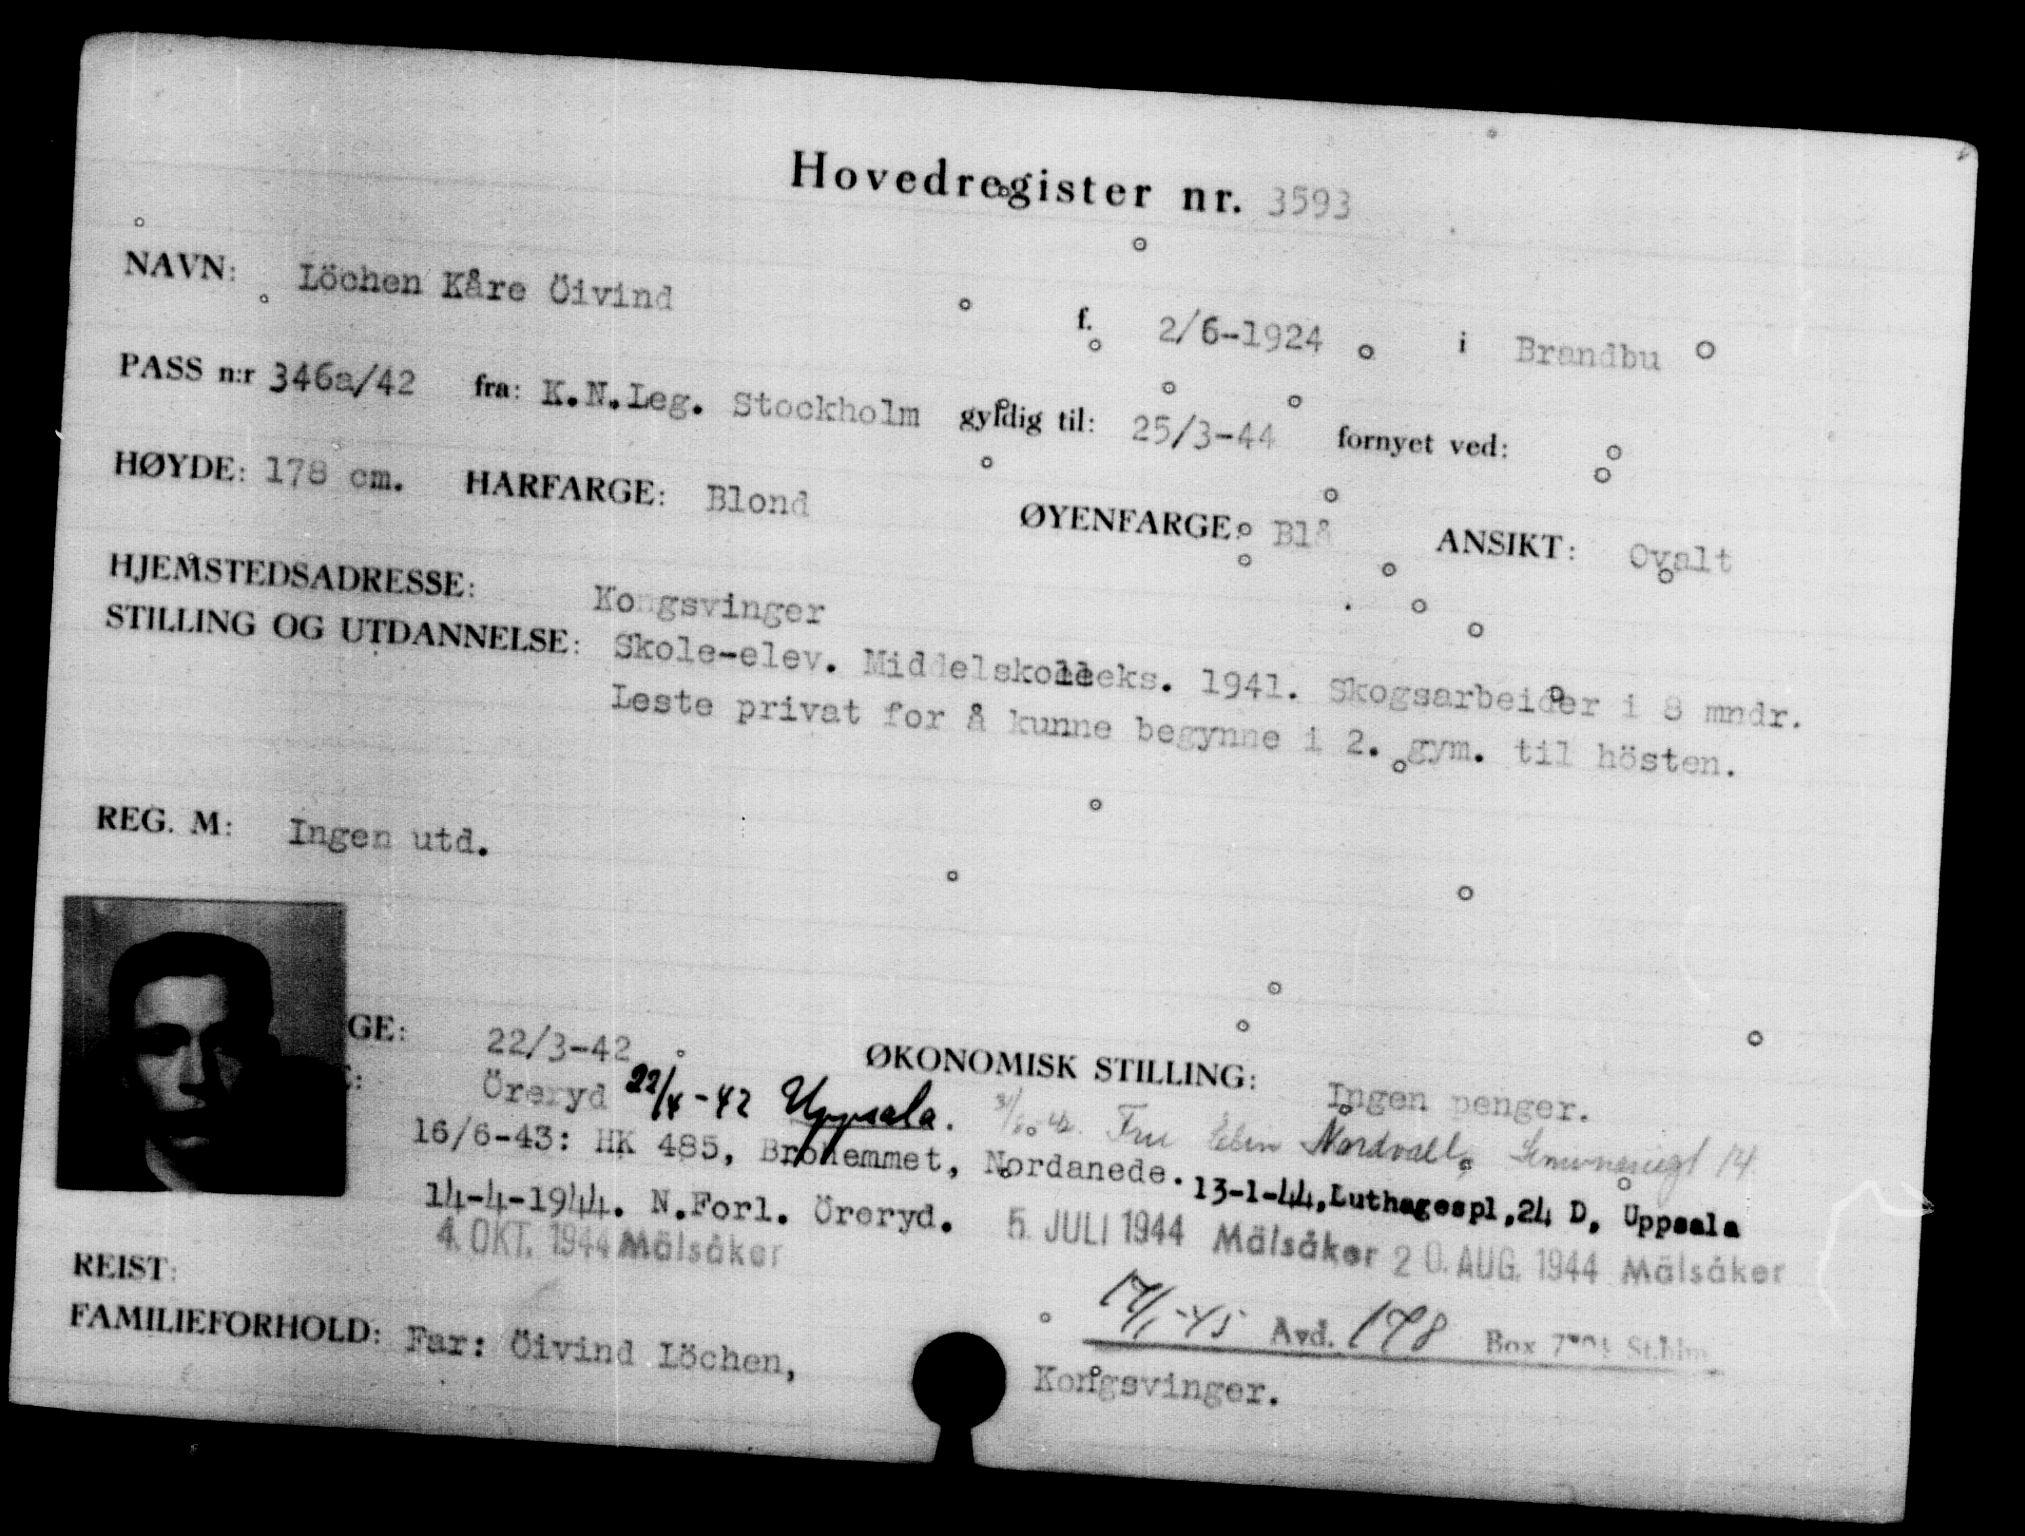 Hovedregister nr. 3593
NAVN: Löchen Kåre Öivind f. 2/6-1924 i Brandbu
PASS n:r 346a/42 fra: K.N.Leg. Stockholm gyldig til: 25/3-44 fornyet ved:
HØYDE: 178 cm. HARFARGE: Blond ØYENFARGE: Blå ANSIKT: Ovalt
HJEMSTEDSADRESSE: Kongsvinger
STILLING OG UTDANNELSE: Skole-elev. Middelskoleeks. 1941. Skogsarbeider i 8 mndr.
Leste privat for å kunne begynne i 2. gym. til hösten.
REG. M: Ingen utd.
GE: 22/3-42 ØKONOMISK STILLING: Ingen penger.
E: Öreryd 22/4-42 Uppsala. Fru Elin Nordvall, 14
16/6-43: HK 485, Brohemmet, Nordanede. 13-1-44, Luthagespl, 24 D, Uppsala
14-4-1944. N.Forl. Öreryd. 5. JULI 1944 Mälsåker 20. AUG. 1944 Mälsåker
4. OKT. 1944 Mälsåker
REIST: 17/1-45 Avd. 178 Box St.hlm
FAMILIEFORHOLD: Far: Öivind Löchen, Kongsvinger.